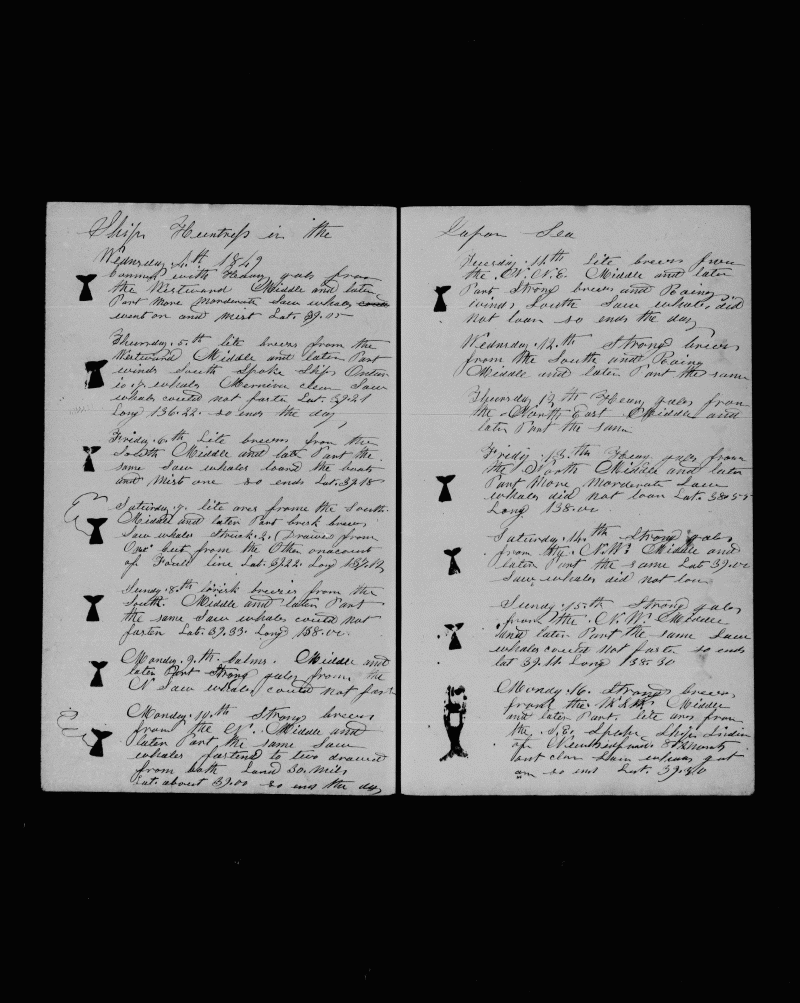 Ship Huntress in the
Wednesday 4th 1849
Comences with Heavy gals from
the Westward Middle and later
Part More Morderate Saw whales
went on and mist Lat. 39.05
Thursday 5th lite brezes from the
Westward Middle and later Part
winds South Spoke Ship
whales clew Saw
whales couted not farten Lat. 39.21
Long 136.22 so ends the day
Friday 6th Lite brezes from the
South Middle and late Part the
same Saw whales loard the boats
and Mist one so ends Lat. 39.18
Saturday 7 lite ares frome the South
Middle and later Part brisk brezes
Saw whales Struck 2 (Drawed from
One cut from the Other onacount
of Fowl line Lat. 39.22 Long
Sunday 8th brisk brezes from the
South. Middle and later Part
the same Saw whales couted not
farten Lat. 39.33 Long 138.00
Monday 9th calms. Middle and
later Part Strong gales from the
N Saw whales couted not fart
Monday 10th Strong brezes
from the N. Middle and
later Part the same Saw
whales fartend to two drawed
from both Land 30. mils
Lat. about 39.00 so ends the day
Japan Sea
Tuesday 11th lite brezes from
the N.N.E. Middle and later
Part Strong brezes and Rainy
winds South Saw whales did
not loar so ends the day
Wednesday 12th Strong brezes
from the South and Rainy
Middle and later Part the same
Thursday 12th Heavy gales from
the North East Middle and
later Part the same
Friday 13th Heavy gales from
the North Middle and later
Part More Morderate Saw
whales did not loar Lat. 38.55
Long 138.00
Saturday 14th Strong gales
from the N.W. Middle and
later Part the same Lat 39.00
Saw whales did not low
Sunday 15th Strong gales
from the N.W. Middle
and later Part the same Saw
whales couted not farten so ends
lat 39.14 Long 138.30
Monday 16. Strong brezes
from the Middle
and later Part. lite ares from
the S.E. Spoke Ship
of 8 Months
out Saw whales got
one so ends Lat. 39.